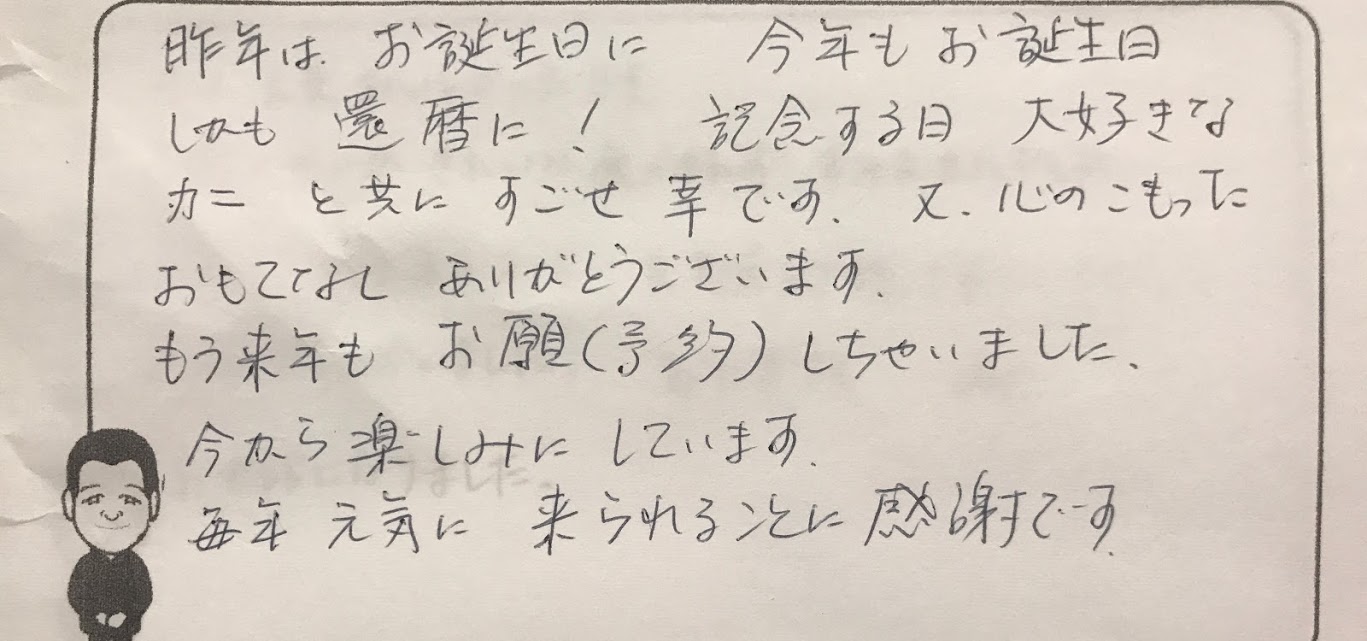 昨年は お誕生日に 今年もお誕生日
しかも 還暦に! 記念する日 大好きな
カニ と共に すごせ 幸です. 又、心のこもった
おもてなし ありがとうございます.
もう来年も お願(予約)しちゃいました、
今から楽しみに しています.
毎年 元気に 来られることに感謝です.